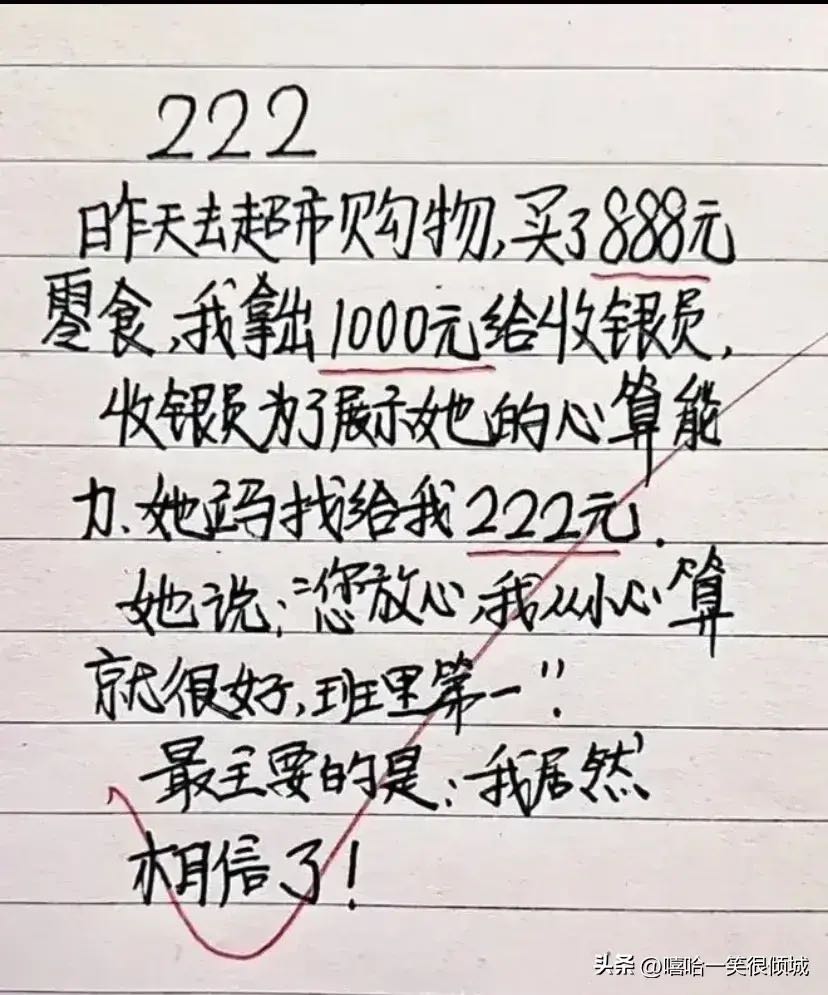 222
昨天去超市购物,买了888元
零食,我拿出1000元给收银员,
收银员为了展示她的心算能
力、她立马找给我222元.
她说:“您放心,我从小心算
就很好,班里第一”!
最主要的是:我居然
相信了!
头条 @嘻哈一笑很倾城